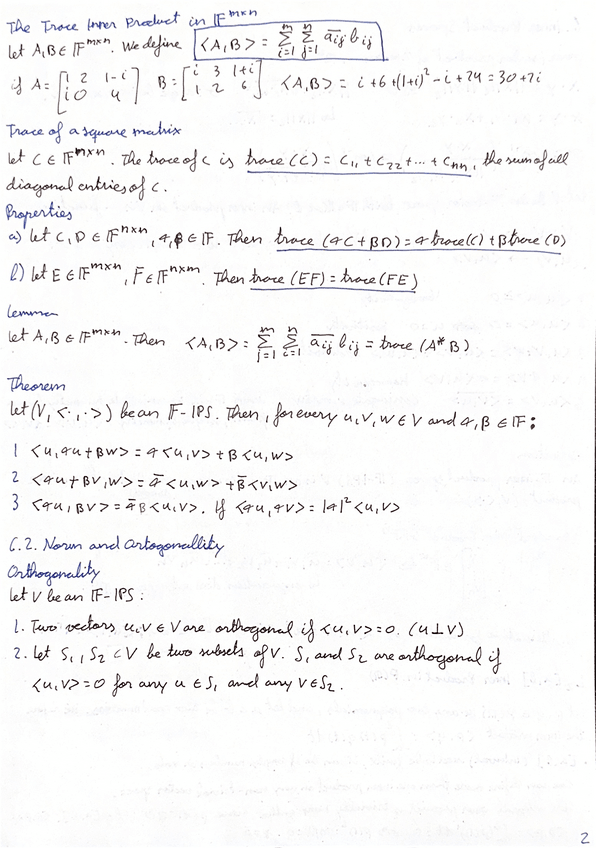 The Trace Inner Product in 𝔽^{m×n}
Let A,B ∈ 𝔽^{m×n}. We define <A,B> = \sum_{i=1}^{m} \sum_{j=1}^{n} \overline{a_{ij}} b_{ij}
if A = [1 2 1-i; i 0 4] B = [i 3 1+i; 1 2 6] <A,B> = i+6+(1+i)² - i + 24 = 30+2i
Trace of a square matrix
Let C ∈ 𝔽^{m×n}. The trace of C is trace (C) = C₁₁ + C₂₂ + ... + C_{nn}, the sum of all
diagonal entries of C.
Properties
a) Let C, D ∈ 𝔽^{n×n}, α,β ∈ 𝔽. Then trace (αC + βD) = α trace(C) + β trace (D)
b) Let E ∈ 𝔽^{m×n}, F ∈ 𝔽^{n×m}. Then trace (EF) = trace (FE)
Lemma
Let A,B ∈ 𝔽^{m×n}. Then <A,B> = \sum_{j=1}^{m} \sum_{i=1}^{n} \overline{a_{ij}} b_{ij} = trace (A* B)
Theorem
Let (V, <·,·>) be an 𝔽-IPS. Then, for every u,v,w ∈ V and α,β ∈ 𝔽:
1 <u,αu + βw> = α<u,v> + β<u,w>
2 <αu + βv,w> = \overline{α}<u,w> + \overline{β}<v,w>
3 <αu, βv> = \overline{α}β<u,v>. If <αu,αv> = |α|²<u,v>
6.2. Norm and Ortogonallity
Orthogonality
Let V be an 𝔽-IPS:
1. Two vectors u,v ∈ V are orthogonal if <u,v> = 0. (u ⊥ v)
2. Let S₁, S₂ ⊂ V be two subsets of V. S₁ and S₂ are orthogonal if
<u,v> = 0 for any u ∈ S₁ and any v ∈ S₂.
2